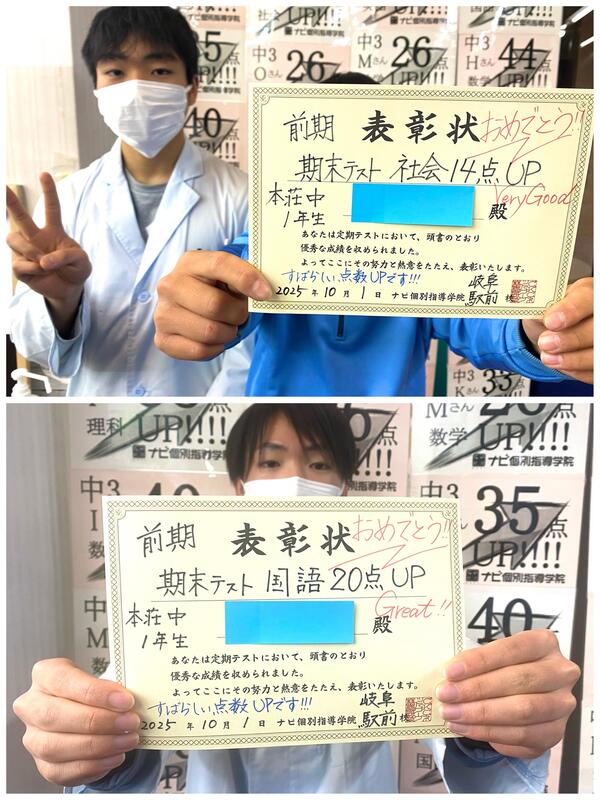 ナビ個別指導学院
中3
Oさん
26
点
UP!!!!
中3
Mさん
26
点
UP!!!!
中3
Hさん
数学
44
点
UP!!!!
40
点
UP!!!!
前期 表彰状 おめでとう!!
期末テスト 社会14点UP
VeryGood
本荘中
1年生
殿
あなたは定期テストにおいて、頭書のとおり
優秀な成績を収められました。
よってここにその努力と熱意をたたえ、表彰いたします。
すばらしい点数UPです!!!
2025年10月1日 ナビ個別指導学院 岐阜駅前校
中3
Kさん
33
理科
UP!!!!
ナビ個別指導学院
Mさん
数学
UP!!!!
ナビ個別指導学院
中3
35
点
UP!!!!
ナビ個別指導学院
40
前期 表彰状 おめでとう!!
期末テスト 国語20点UP
Great!!
本荘中
1年生
殿
あなたは定期テストにおいて、頭書のとおり
優秀な成績を収められました。
よってここにその努力と熱意をたたえ、表彰いたします。
すばらしい点数UPです!!!
2025年10月1日 ナビ個別指導学院 岐阜駅前校